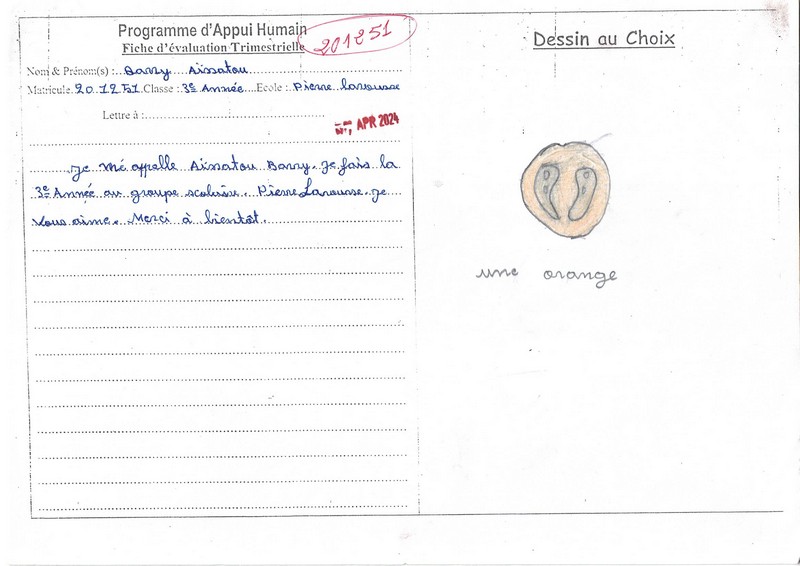 Programme d'Appui Humain
Fiche d'évaluation Trimestrielle
201251
Nom & Prénom(s) : Barry Aïssatou
Matricule 201251 Classe : 3e Année Ecole : Pierre larousse
Lettre à :
APR 2024
Je mé appelle Aïssatou Barry. Je fais la
3e Année au groupe scolaire. Pierre Larousse. Je
Vous aime. Merci à bientôt.
Dessin au Choix
une orange